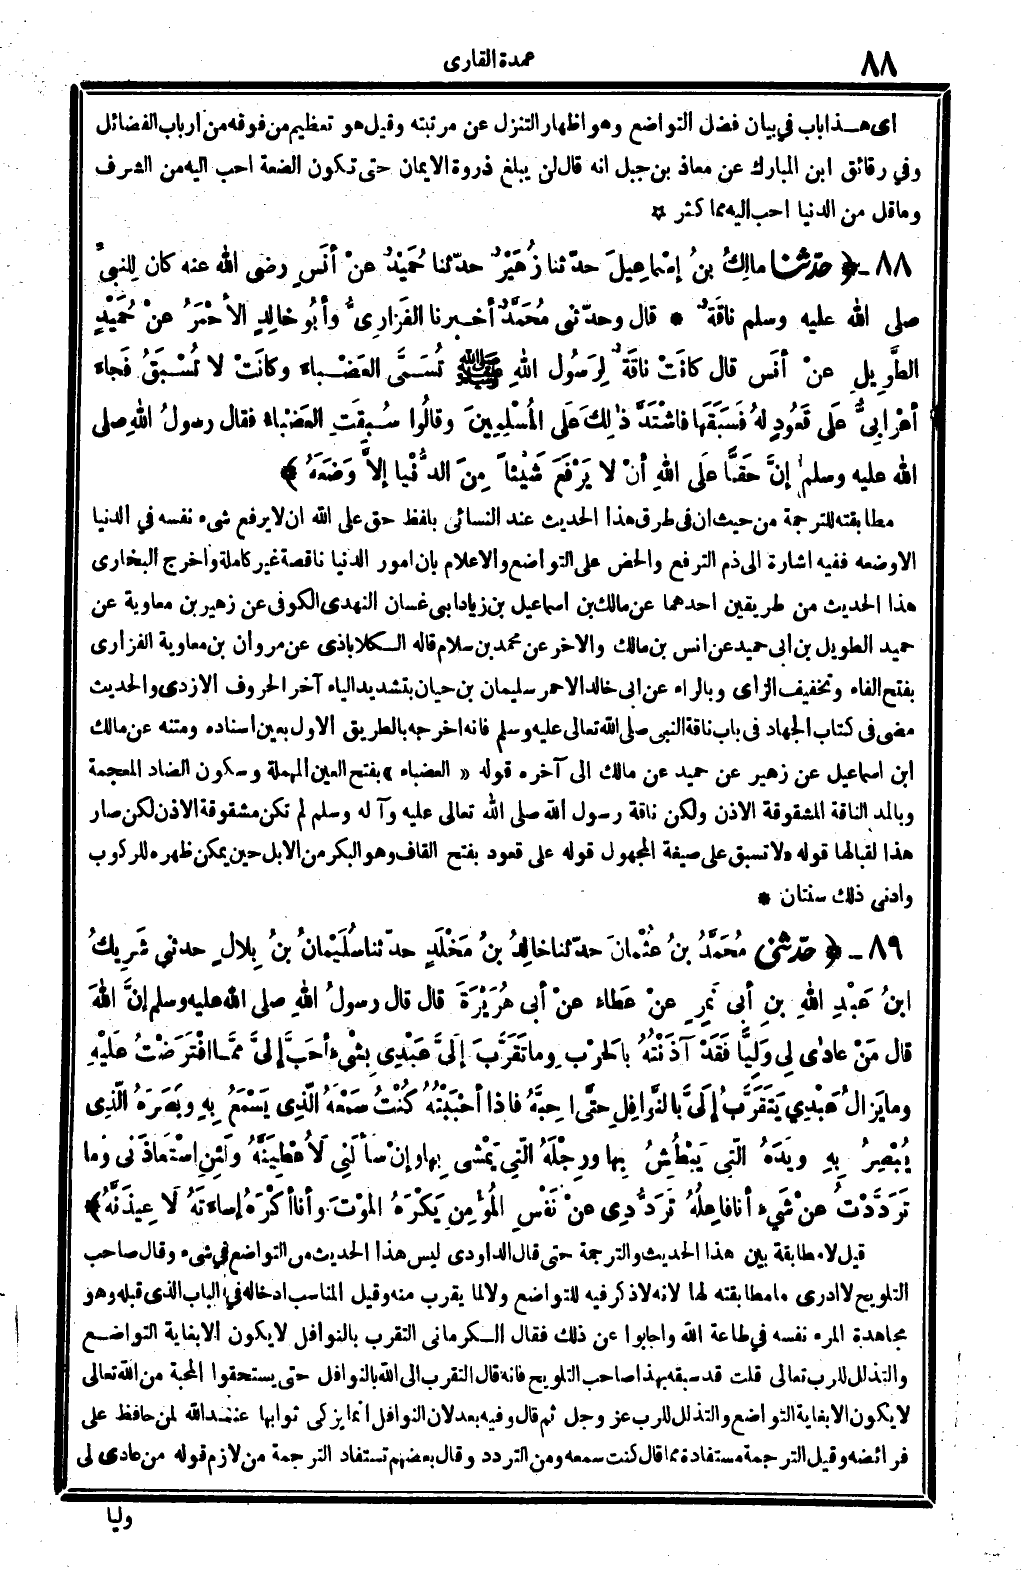 ٨٨
عمدة القارى
اى هذا باب في بيان فضل التواضع وهو اظهار التنزل عن مرتبته وقيل هو تعظيم من فوقه من ارباب الفضائل
وفي رقائق ابن المبارك عن معاذ بن جبل انه قال لن يبلغ ذروة الايمان حتى تكون الضعة احب اليه من الشرف
وما قل من الدنيا احب اليه مما كثر ✡
٨٨ - ﴿ حدّثنا مالِكُ بنُ إسْماعِيلَ حدّثنا زُهَيْرٌ حدّثنا حُمَيْدٌ عنْ أنَسٍ رضى الله عنه كان لِلنبىِّ
صلى الله عليه وسلم ناقَةٌ * قال وحدّثنى مُحَمَّدٌ أخبرنا الفَزارِىُّ وأبُو خالِدٍ الأحْمَرُ عنْ حُمَيْدٍ
الطَّوِيلِ عنْ أنَسٍ قال كانَتْ ناقَةٌ لِرَسُولِ اللهِ ﷺ تُسَمَّى العَضْباءَ وكانَتْ لا تُسْبَقُ فَجاءَ
أعْرابِىٌّ عَلَى قَعُودٍ لهُ فَسَبَقَها فاشْتَدَّ ذٰلِكَ عَلَى المُسْلِمِينَ وقالُوا سُبِقَتِ العَضْباءُ فقال رسولُ اللهِ صلى
الله عليه وسلم إنَّ حَقًّا عَلَى اللهِ أنْ لا يَرْفَعَ شَيْئاً مِنَ الدُّنْيا إلاَّ وَضَعَهُ ﴾
مطابقته للترجمة من حيث ان فى طرق هذا الحديث عند النسائى بلفظ حق على الله ان لا يرفع شىء نفسه في الدنيا
الا وضعه ففيه اشارة الى ذم الترفع والحض على التواضع والاعلام بان امور الدنيا ناقصة غير كاملة واخرج البخارى
هذا الحديث من طريقين احدهما عن مالك بن اسماعيل بن زياد ابى غسان النهدى الكوفى عن زهير بن معاوية عن
حميد الطويل بن ابى حميد عن انس بن مالك والاخر عن محمد بن سلام قاله الكلاباذى عن مروان بن معاوية الفزارى
بفتح الفاء وتخفيف الزاى وبالراء عن ابى خالد الاحمر سليمان بن حيان بتشديد الياء آخر الحروف الازدى والحديث
مضى فى كتاب الجهاد فى باب ناقة النبى صلى الله تعالى عليه وسلم فانه اخرجه بالطريق الاول بعين اسناده ومتنه عن مالك
ابن اسماعيل عن زهير عن حميد عن مالك الى آخره قوله « العضباء » بفتح العين المهملة وسكون الضاد المعجمة
وبالمد الناقة المشقوقة الاذن ولكن ناقة رسول الله صلى الله تعالى عليه وآله وسلم لم تكن مشقوقة الاذن لكن صار
هذا لقبا لها قوله «لا تسبق على صيغة المجهول قوله على قعود بفتح القاف وهو البكر من الابل حين يمكن ظهره للركوب
وادنى ذلك سنتان *
٨٩ - ﴿ حدّثنى مُحَمَّدُ بنُ عُثْمانَ حدّثنا خالِدُ بنُ مَخْلَدٍ حدّثنا سُلَيْمانُ بنُ بِلالٍ حدثني شَرِيكُ
ابنُ عَبْدِ اللهِ بنِ أبى نَمِرٍ عنْ عَطاءٍ عنْ أبى هُرَيْرَةَ قال قال رسولُ اللهِ صلى الله عليه وسلم إنَّ اللهَ
قال مَنْ عادَى لِى وَلِيًّا فَقَدْ آذَنْتُهُ بالحَرْبِ وما تَقَرَّبَ إلَىَّ عَبْدِى بِشَىْءٍ أحَبَّ إلَىَّ مِمَّا افْتَرَضْتُ عَلَيْهِ
وما يَزالُ عَبْدِي يَتَقَرَّبُ إلَىَّ بالنَّوافِلِ حتَّى اُحِبَّهُ فاذا أحْبَبْتُهُ كُنْتُ سَمْعَهُ الَّذِى يَسْمَعُ بِهِ وبَصَرَهُ الَّذِى
يُبْصِرُ بِهِ ويَدَهُ الَّتِى يَبْطُشُ بِها ورِجْلَهُ الَّتِي يَمْشِى بِها وإنْ سَألَنِي لَاُعْطِيَنَّهُ ولَئِنِ اسْتَعاذَنى وما
تَرَدَّدْتُ عنْ شَىْءٍ أنا فاعِلُهُ تَرَدُّدِى عنْ نَفْسِ المُؤْمِنِ يَكْرَهُ المَوْتَ وأنا أكْرَهُ إساءَتَهُ لَاُعِيذَنَّهُ﴾
قيل لا مطابقة بين هذا الحديث والترجمة حتى قال الداودى ليس هذا الحديث من التواضع في شىء وقال صاحب
التلويح لا ادرى ما مطابقته لها لانه لا ذكر فيه للتواضع ولا لما يقرب منه وقيل المناسب ادخاله في الباب الذى قبله وهو
مجاهدة المرء نفسه في طاعة الله واجابوا عن ذلك فقال الكرمانى التقرب بالنوافل لا يكون الا بغاية التواضع
والتذلل للرب تعالى قلت قد سبقه بهذا صاحب التلويح فانه قال التقرب الى الله بالنوافل حتى يستحقوا المحبة من الله تعالى
لا يكون الا بغاية التواضع والتذلل للرب عز وجل ثم قال وفيه بعد لان النوافل انما يزكى ثوابها عند الله لمن حافظ على
فرائضه وقيل الترجمة مستفادة مما قال كنت سمعه ومن التردد وقال بعضهم تستفاد الترجمة من لازم قوله من عادى لى
وليا